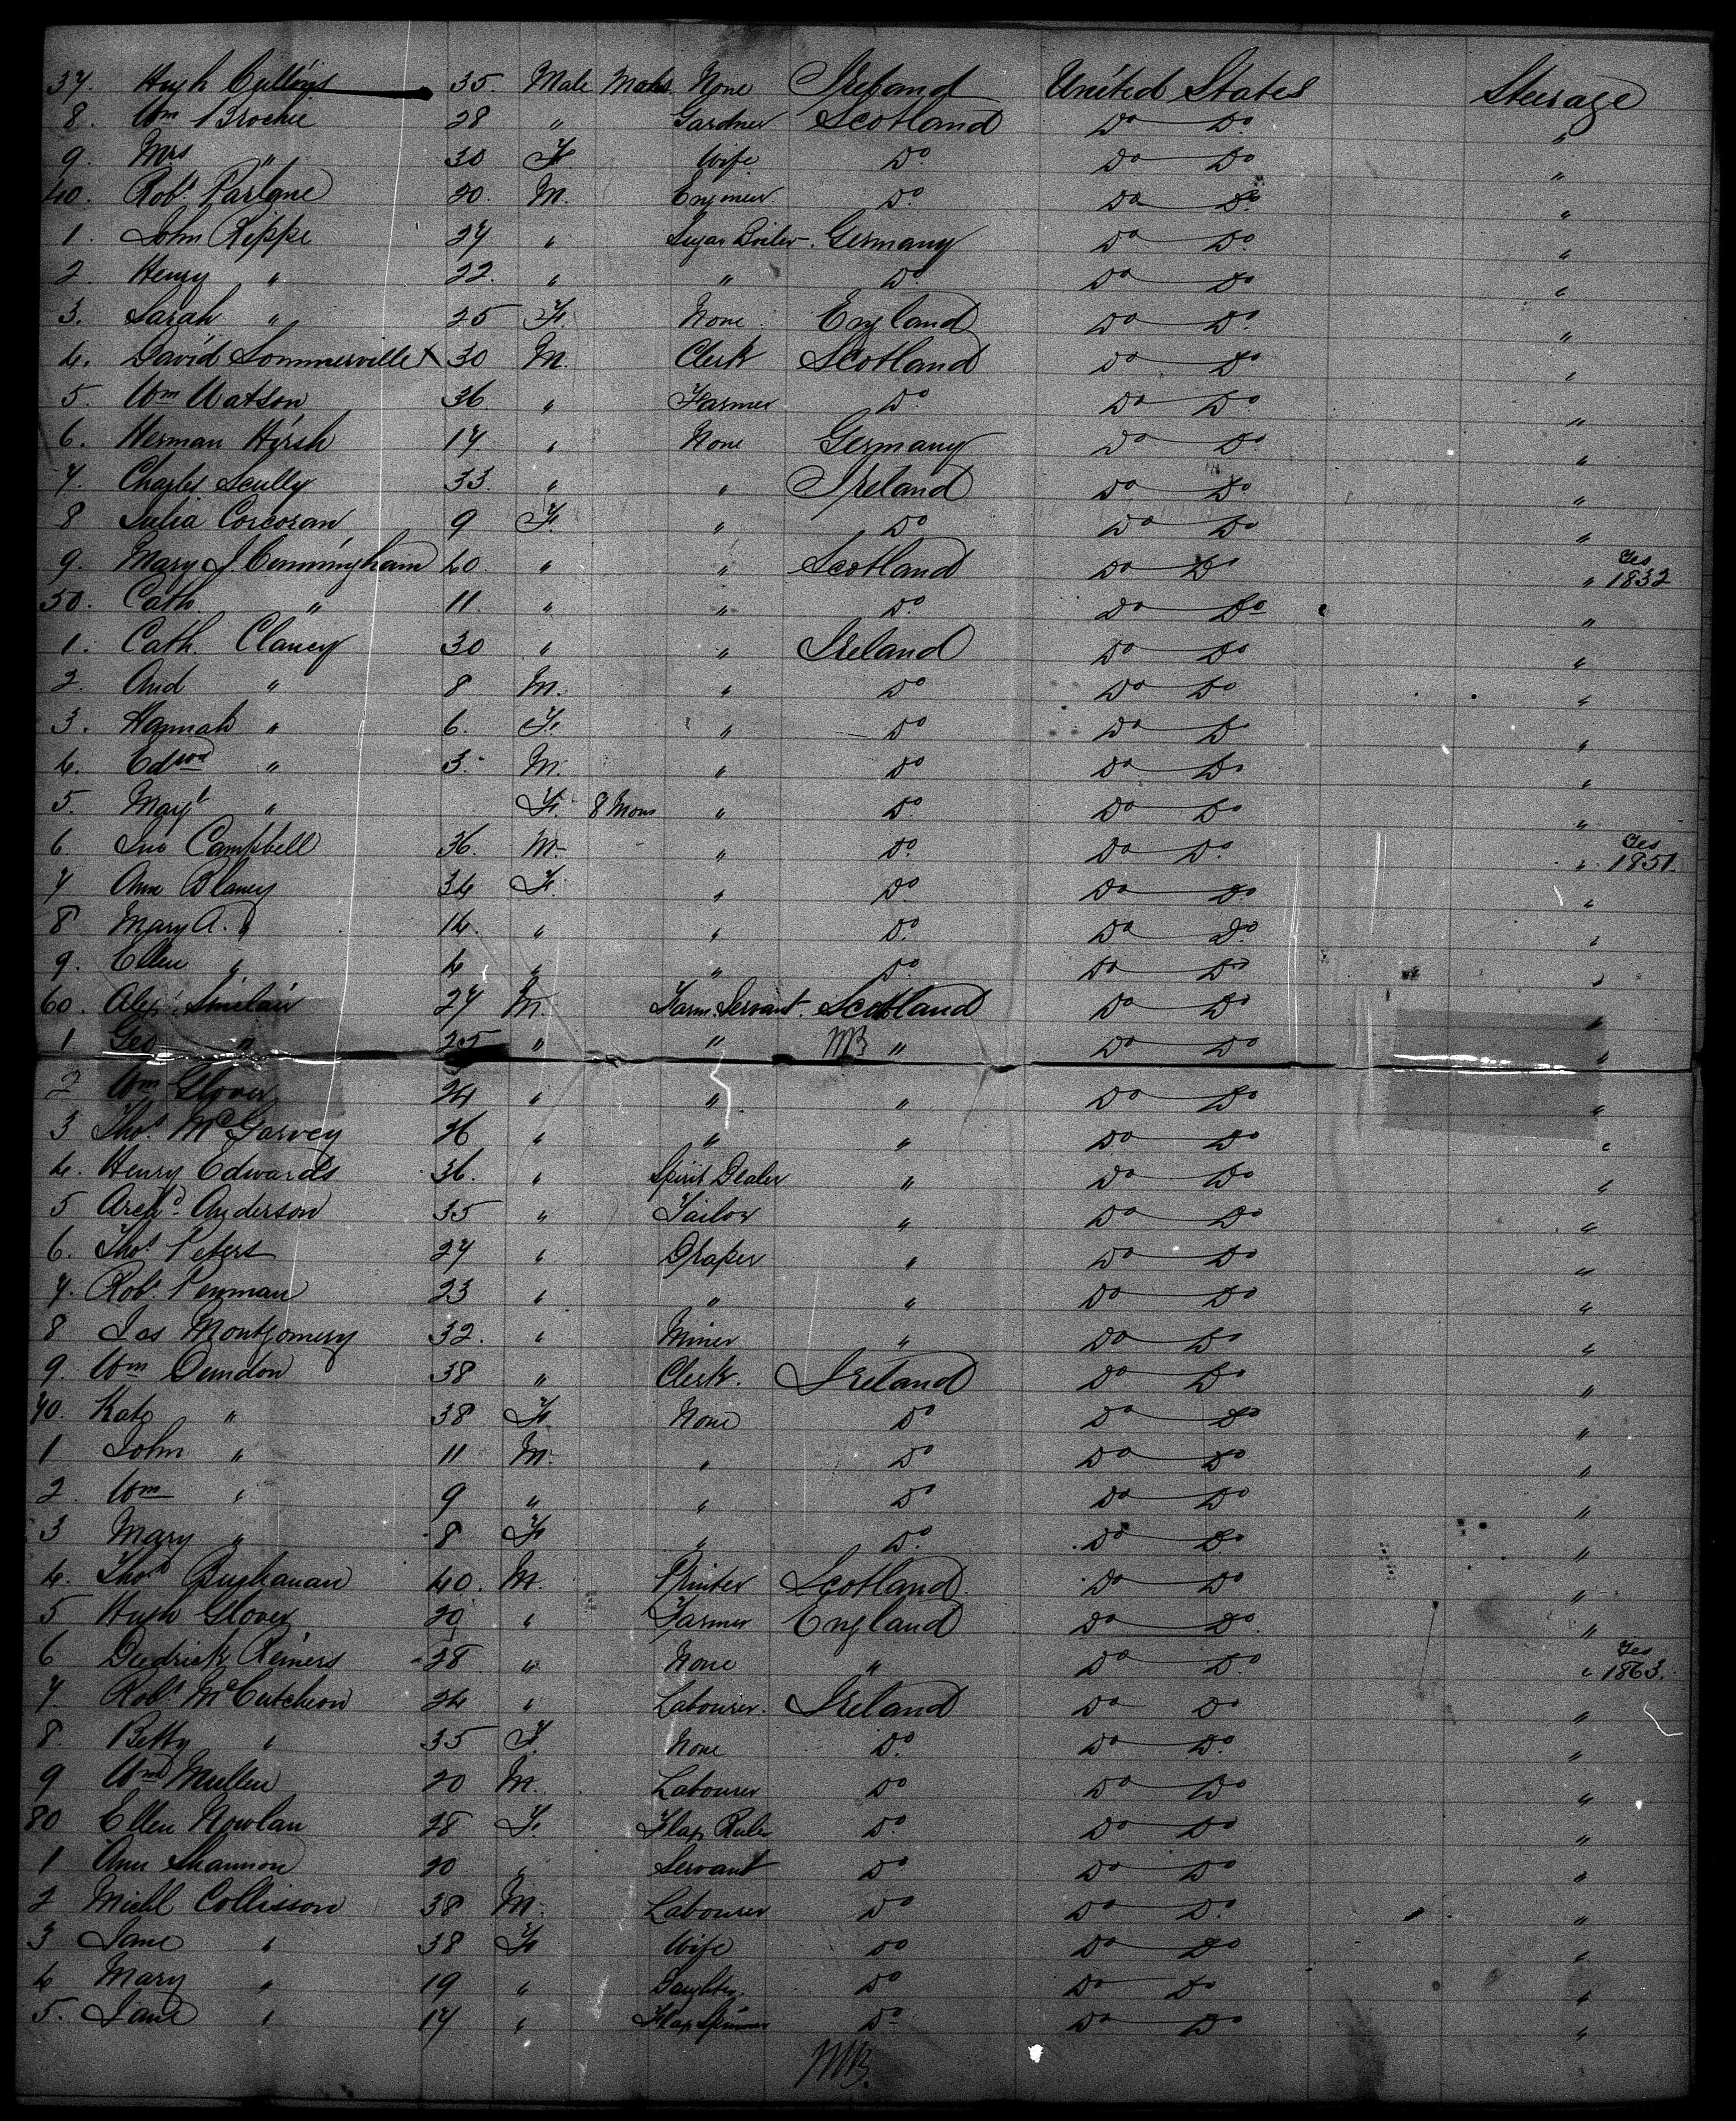 37. Hugh Cullings 35. Male Mochs None Ireland United States Steerage
8. Wm Brochie 28 " Gardner Scotland Do Do "
9. Mrs " 30 F. Wife Do. Do Do "
40. Robt. Parlane 20. M. Engineer Do. Do Do "
1. John Rippe 27 " Sugar Boiler. Germany Do Do "
2. Henry " 22. " " Do. Do Do "
3. Sarah " 25 F. None England Do Do "
4. David Sommerville X 30 M. Clerk Scotland Do Do "
5. Wm Watson 36. " Farmer Do. Do Do "
6. Herman Hirsh 17. " None Germany Do Do "
7. Charles Scully 33. " " Ireland Do Do "
8 Julia Corcoran 9 F. " Do Do Do "
9. Mary J Cunningham 40 " " Scotland Do Do " Yes 1832
50. Cath. " 11. " " Do. Do Do "
1. Cath. Clancy 30 " " Ireland Do Do "
2. And " 8 M. " Do Do Do "
3. Hannah " 6. F. " Do Do Do "
4. Edwd " 3. M. " Do Do Do "
5. Margt " F. 8 Mons " Do. Do Do "
6. Jno Campbell 36. M. " Do. Do Do. " Yes 1851.
7 Ann Blaney 34 F. " Do. Do Do. "
8 Mary A. " 14. " " Do. Do Do. "
9. Ellen " 4 " " Do Do Do "
60. Alex. Sinclair 27 M. Farm. Servant. Scotland Do Do "
1 Geo " 25 " " " Do Do "
2 Wm Glover 24 " " " Do Do "
3 Thos. McGarvey 26 " " " Do Do "
4. Henry Edwards 36. " Spirit Dealer " Do Do "
5 Archd. Anderson 35 " Tailor " Do Do "
6. Thos. Peters 27 " Draper " Do Do "
7. Robt. Penman 23 " " " Do Do "
8 Jas Montgomery 32. " Miner " Do Do "
9. Wm Dundon 38 " Clerk. Ireland Do Do "
70. Kate " 38 F. None Do Do Do "
1 John " 11 M. " Do Do Do "
2. Wm " 9 " " Do Do Do "
3 Mary " 8 F " Do. Do Do "
4. Thos Buchanan 40. M. Printer Scotland Do Do "
5 Hugh Glover 20 " Farmer England Do Do. "
6 Diedrick Reiners 28 " None " Do Do. " Yes 1863.
7. Robt. McCutcheon 24 " Labourer. Ireland Do Do "
8. Betty " 35 F. None Do. Do Do. "
9 Wm Mullen 20 M. Labourer Do Do Do "
80 Ellen Nowlan 28 F. Flax Do. Do Do "
1 Ann Shannon 20 " Servant Do Do Do "
2 Michl Collisson 38 M. Labourer Do Do Do. "
3 Jane " 38 F Wife Do Do Do "
4 Mary " 19 " Daughter. Do Do Do "
5. Jane " 17 " Flax Spinner Do Do Do "